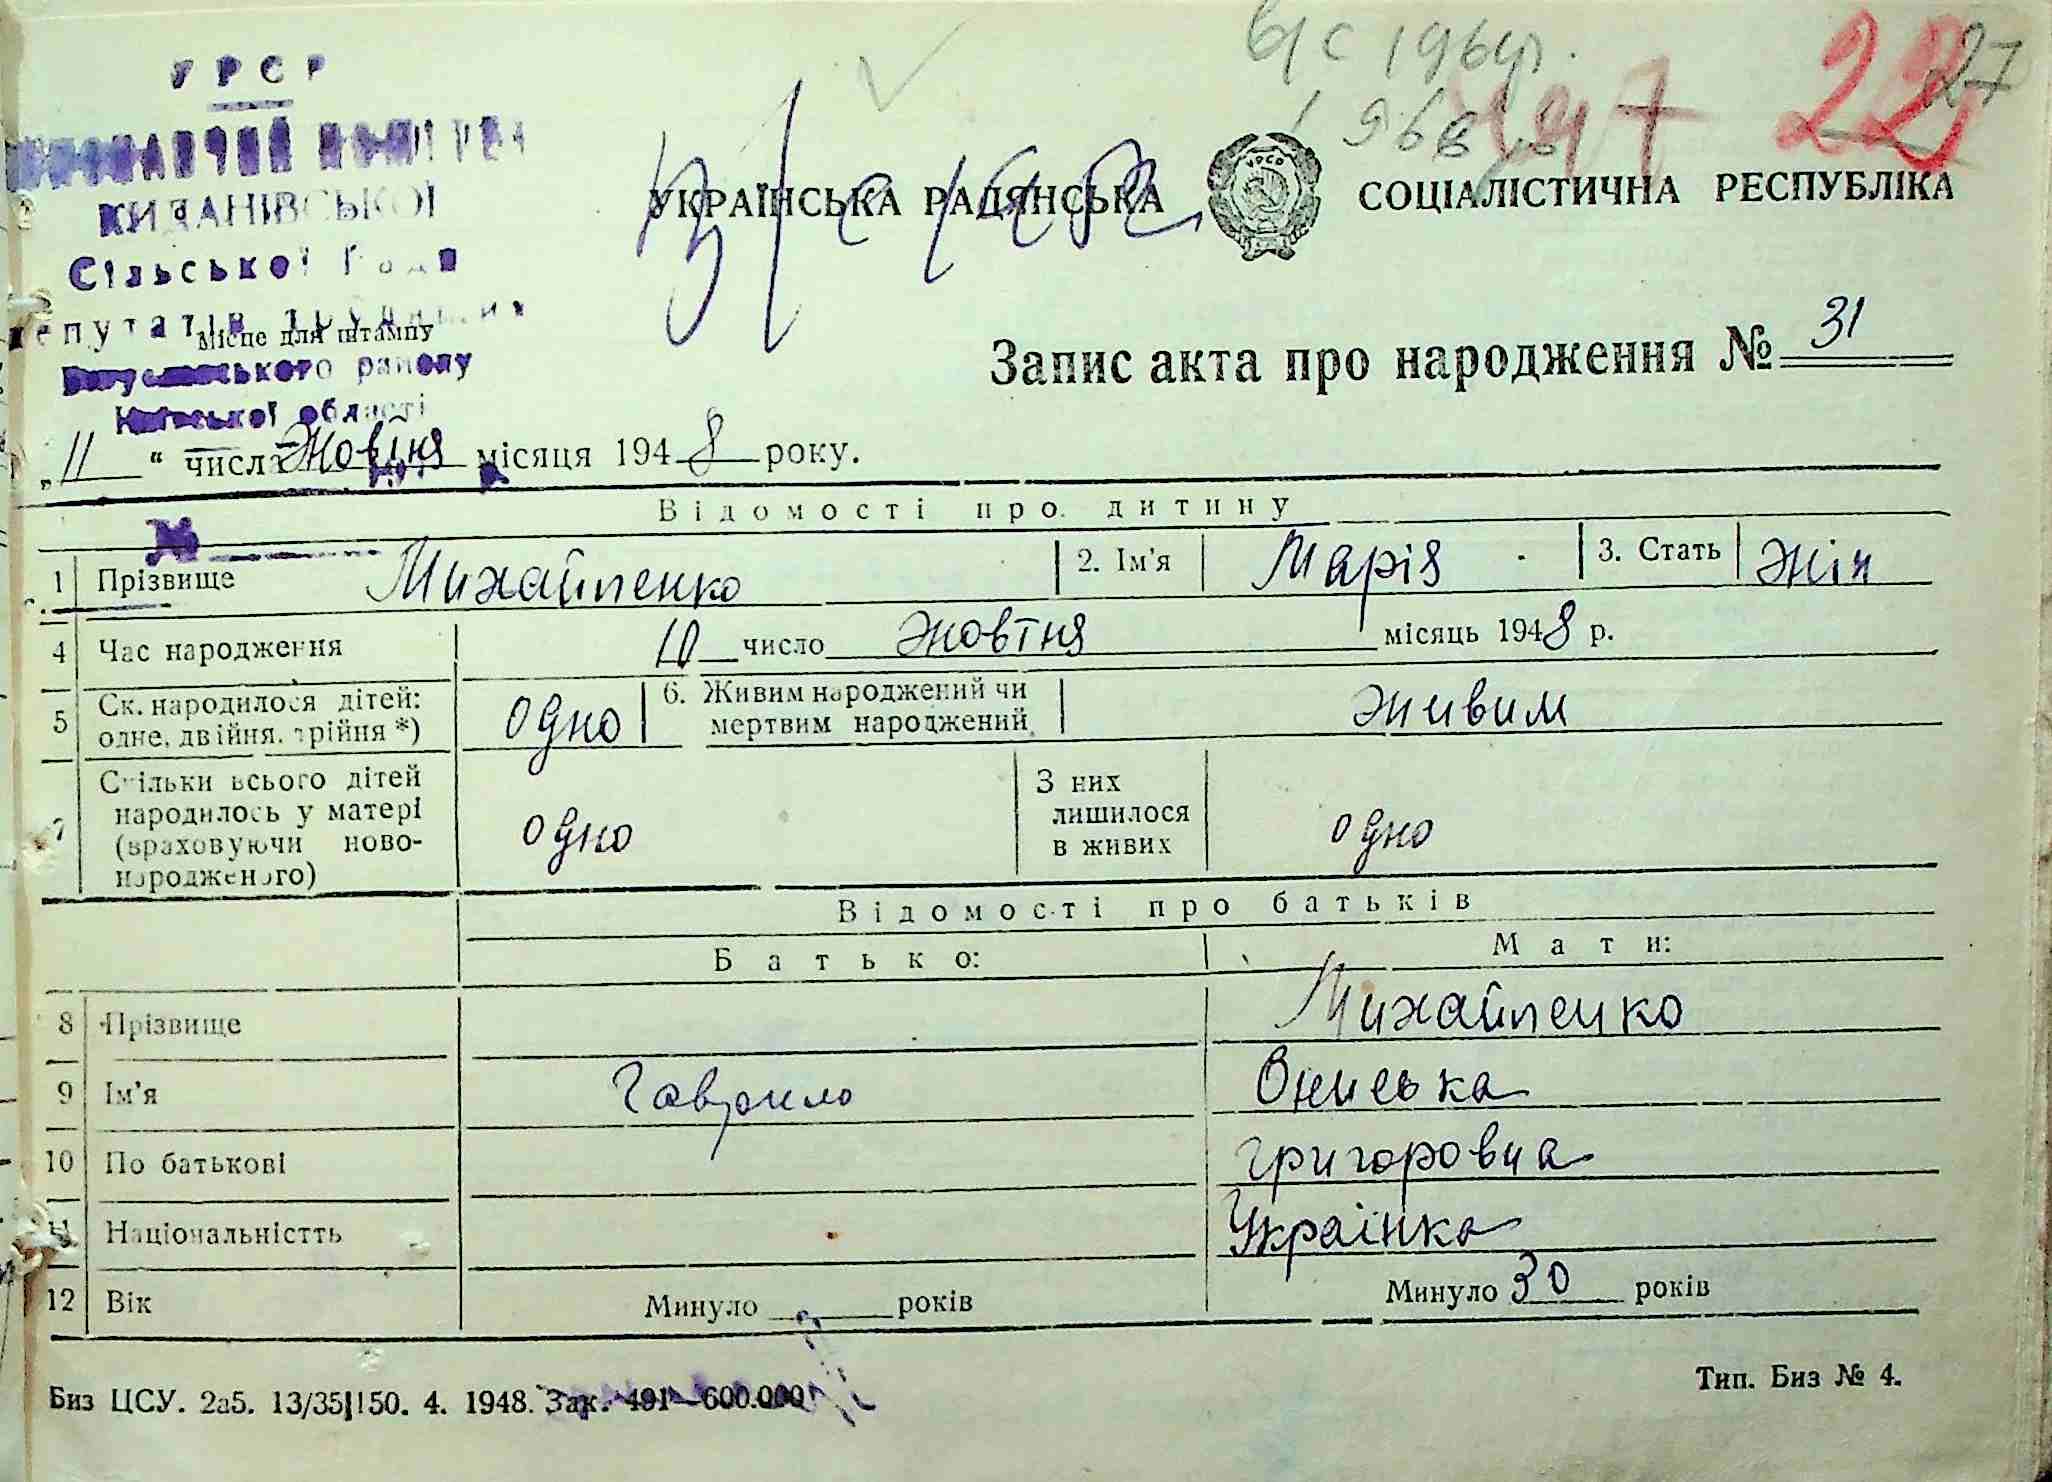 в/с 1964р.
1968р
27
УРСР
КИДАНІВСЬКОЇ
Сільської Ради
депутатів трудящих
Місце для штампу
району
Київської області
УКРАЇНСЬКА РАДЯНСЬКА СОЦІАЛІСТИЧНА РЕСПУБЛІКА
Запис акта про народження № 31
„11“ числа Жовтня місяця 1948 року.
Відомості про дитину
1 Прізвище Михайленко 2. Ім'я Марія 3. Стать Жін
4 Час народження 10 число жовтня місяць 1948 р.
5 Ск. народилося дітей: одне, двійня, трійня *) одно 6. Живим народжений чи мертвим народжений живим
7 Скільки всього дітей народилось у матері (враховуючи ново-народженого) одно З них лишилося в живих одно
Відомості про батьків
Батько: Мати:
8 Прізвище Михайленко
9 Ім'я Гаврило Ониська
10 По батькові Григоровна
11 Національністть Українка
12 Вік Минуло років Минуло 30 років
Биз ЦСУ. 2а5. 13/35 150. 4. 1948. Зак. 491—600.000 Тип. Биз № 4.